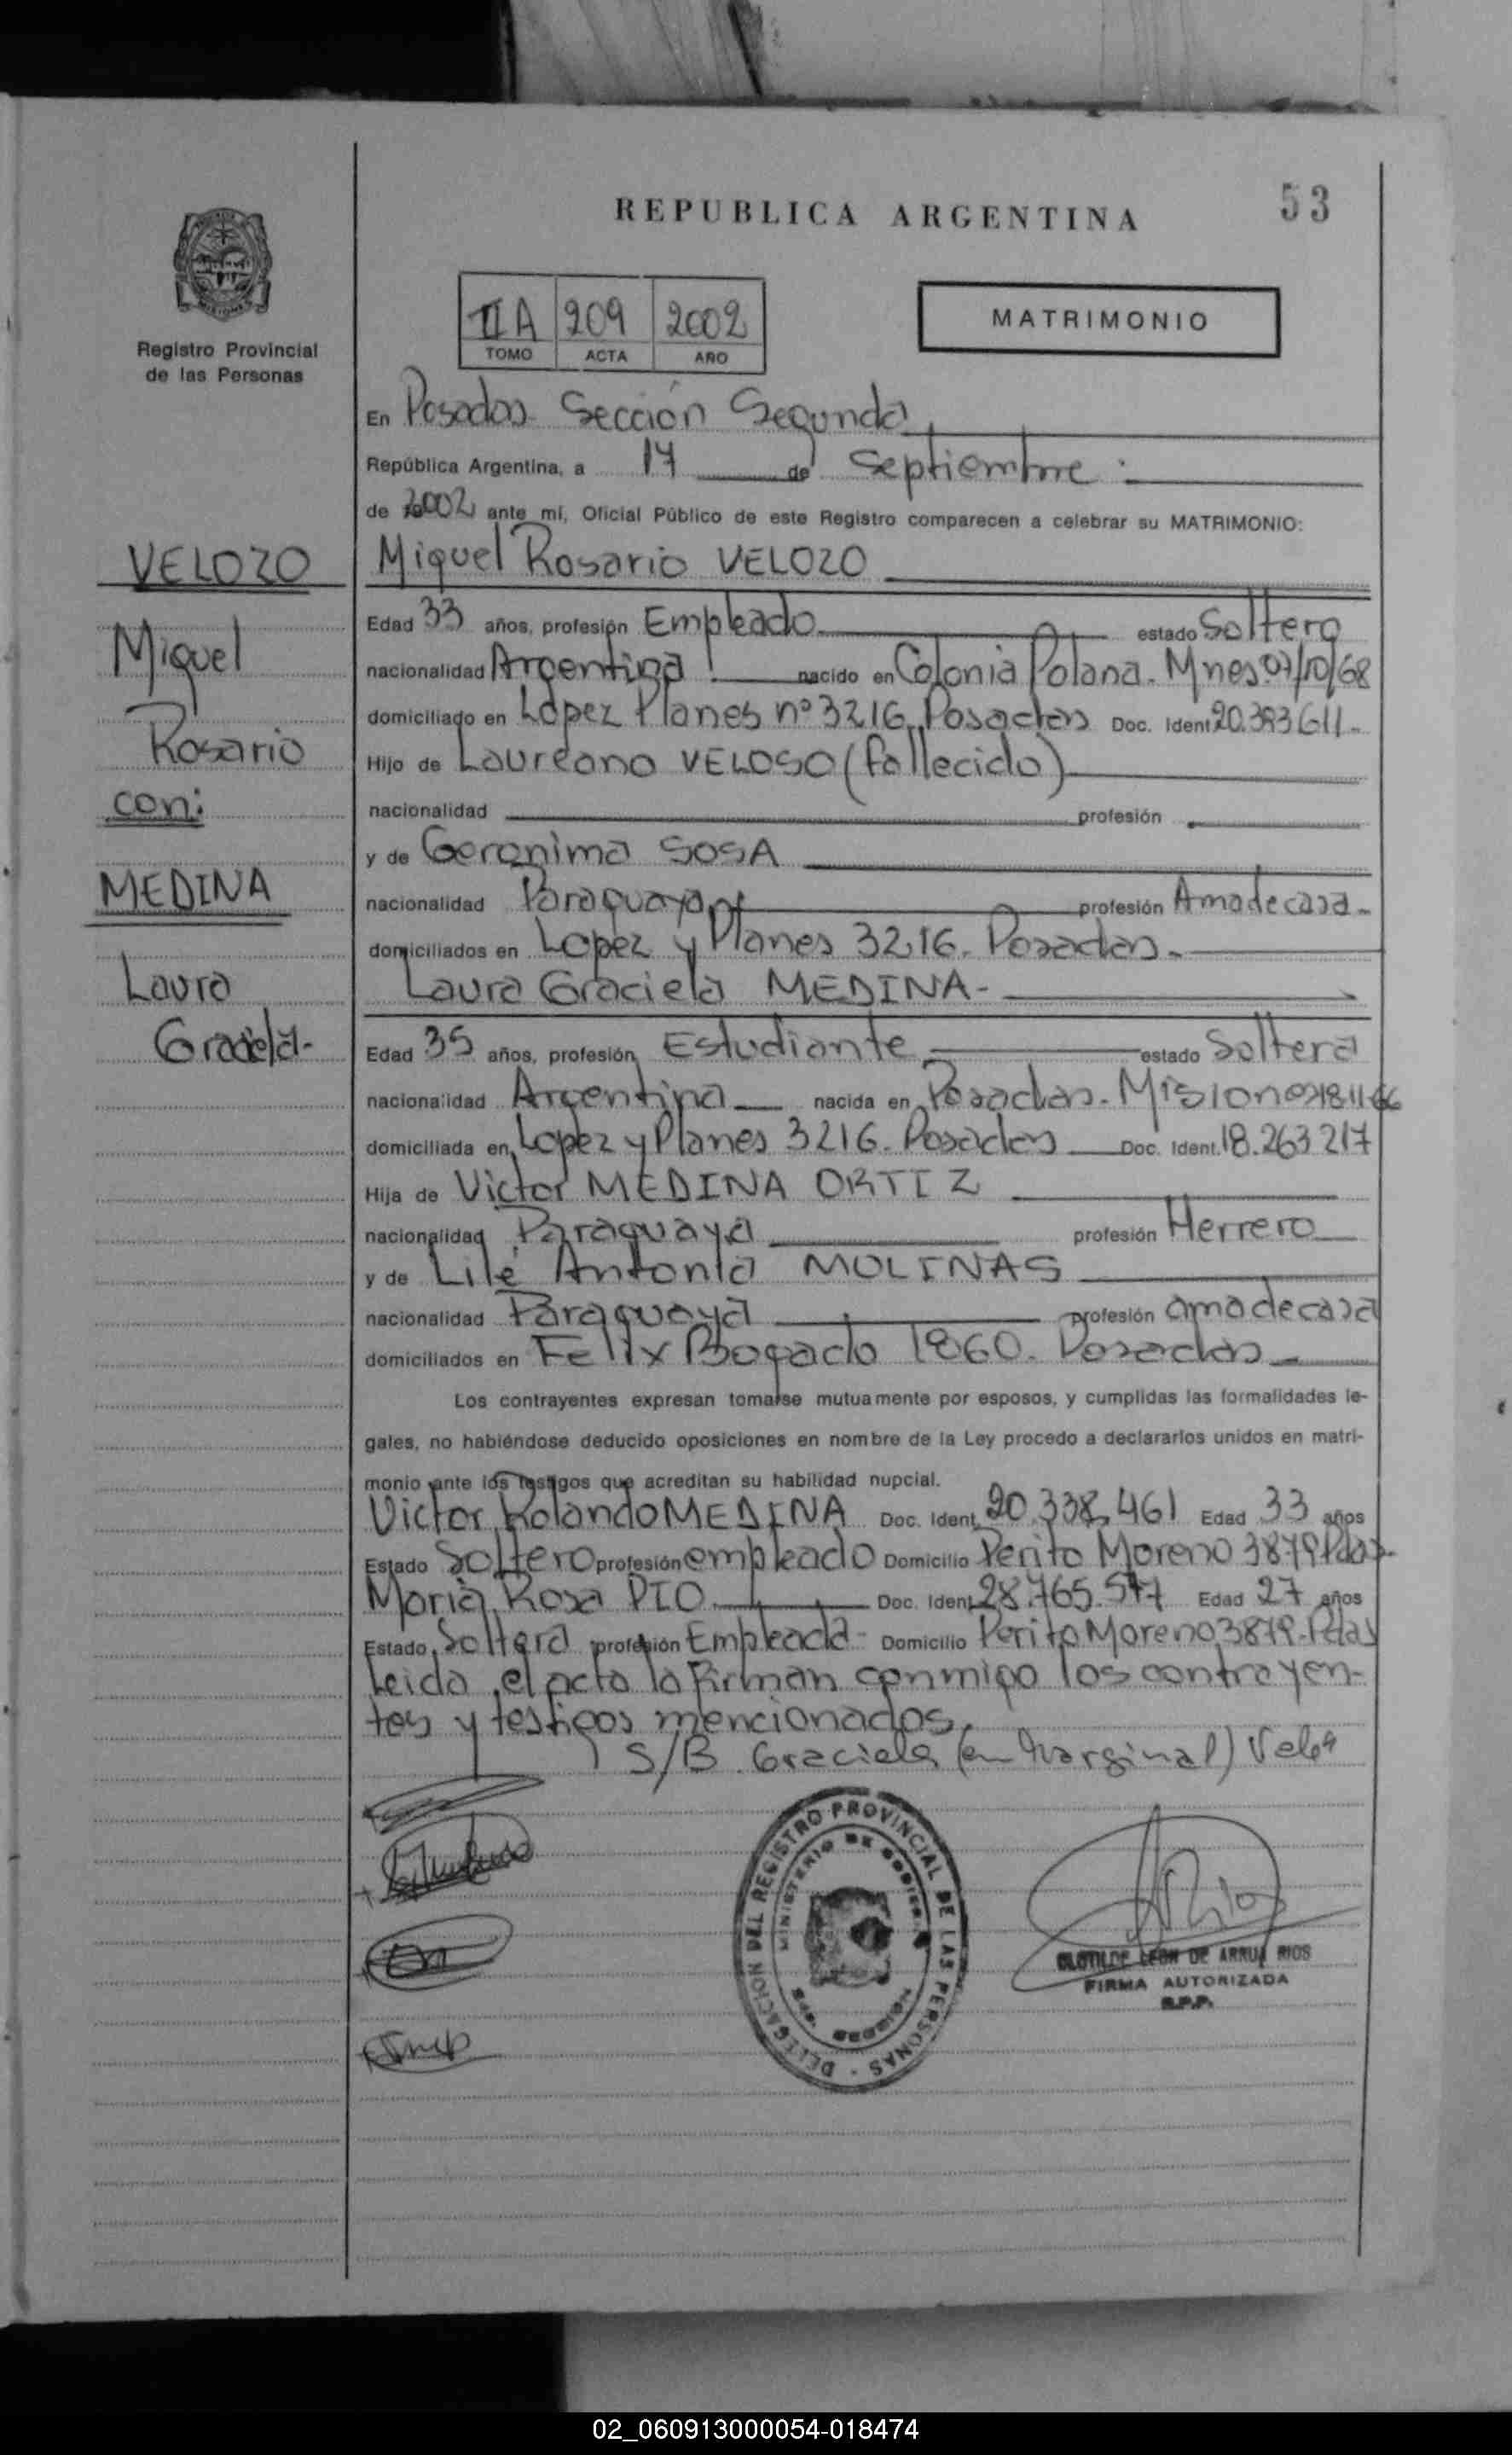 REPUBLICA ARGENTINA
53
Registro Provincial
de las Personas
II A 209 2002
TOMO ACTA AÑO
MATRIMONIO
En Posadas Sección Segunda
República Argentina, a 17 de Septiembre
de 2002 ante mí, Oficial Público de este Registro comparecen a celebrar su MATRIMONIO:
VELOZO
Miguel
Rosario
con:
MEDINA
Laura
Graciela-
Miguel Rosario VELOZO
Edad 33 años, profesión Empleado estado Soltero
nacionalidad Argentina nacido en Colonia Polana. Mnes. 07/10/68
domiciliado en López Planes nº 3216, Posadas Doc. Ident 20.393611-
Hijo de Laureano VELOSO (fallecido)
nacionalidad profesión
y de Geronima SOSA
nacionalidad Paraguaya profesión Ama de casa-
domiciliados en Lopez y Planes 3216. Posadas-
Laura Graciela MEDINA-
Edad 35 años, profesión Estudiante estado Soltera
nacionalidad Argentina nacida en Posadas. Misiones 18 11 66
domiciliada en Lopez y Planes 3216. Posadas Doc. Ident. 18.263 217
Hija de Victor MEDINA ORTIZ
nacionalidad Paraguaya profesión Herrero
y de Lile Antonia MOLINAS
nacionalidad Paraguaya profesión ama de casa
domiciliados en Felix Bogado 1860. Posadas
Los contrayentes expresan tomarse mutuamente por esposos, y cumplidas las formalidades le-
gales, no habiéndose deducido oposiciones en nombre de la Ley procedo a declararlos unidos en matri-
monio ante los testigos que acreditan su habilidad nupcial.
Victor Rolando MEDINA Doc. Ident. 20.338.461 Edad 33 años
Estado Soltero profesión empleado Domicilio Perito Moreno 3879 Pdas-
Maria Rosa PIO Doc. Ident 28.765.577 Edad 27 años
Estado Soltera profesión Empleada- Domicilio Perito Moreno 3879-Pdas
Leida, el acta la firman conmigo los contrayen-
tes y testigos mencionados.
S/B. Graciela (en marginal) Vale
DELEGACION DEL REGISTRO PROVINCIAL DE LAS PERSONAS
MINISTERIO DE GOBIERNO
POSADAS
CLOTILDE LEON DE ARRUA RIOS
FIRMA AUTORIZADA
R.P.P.
02_060913000054-018474